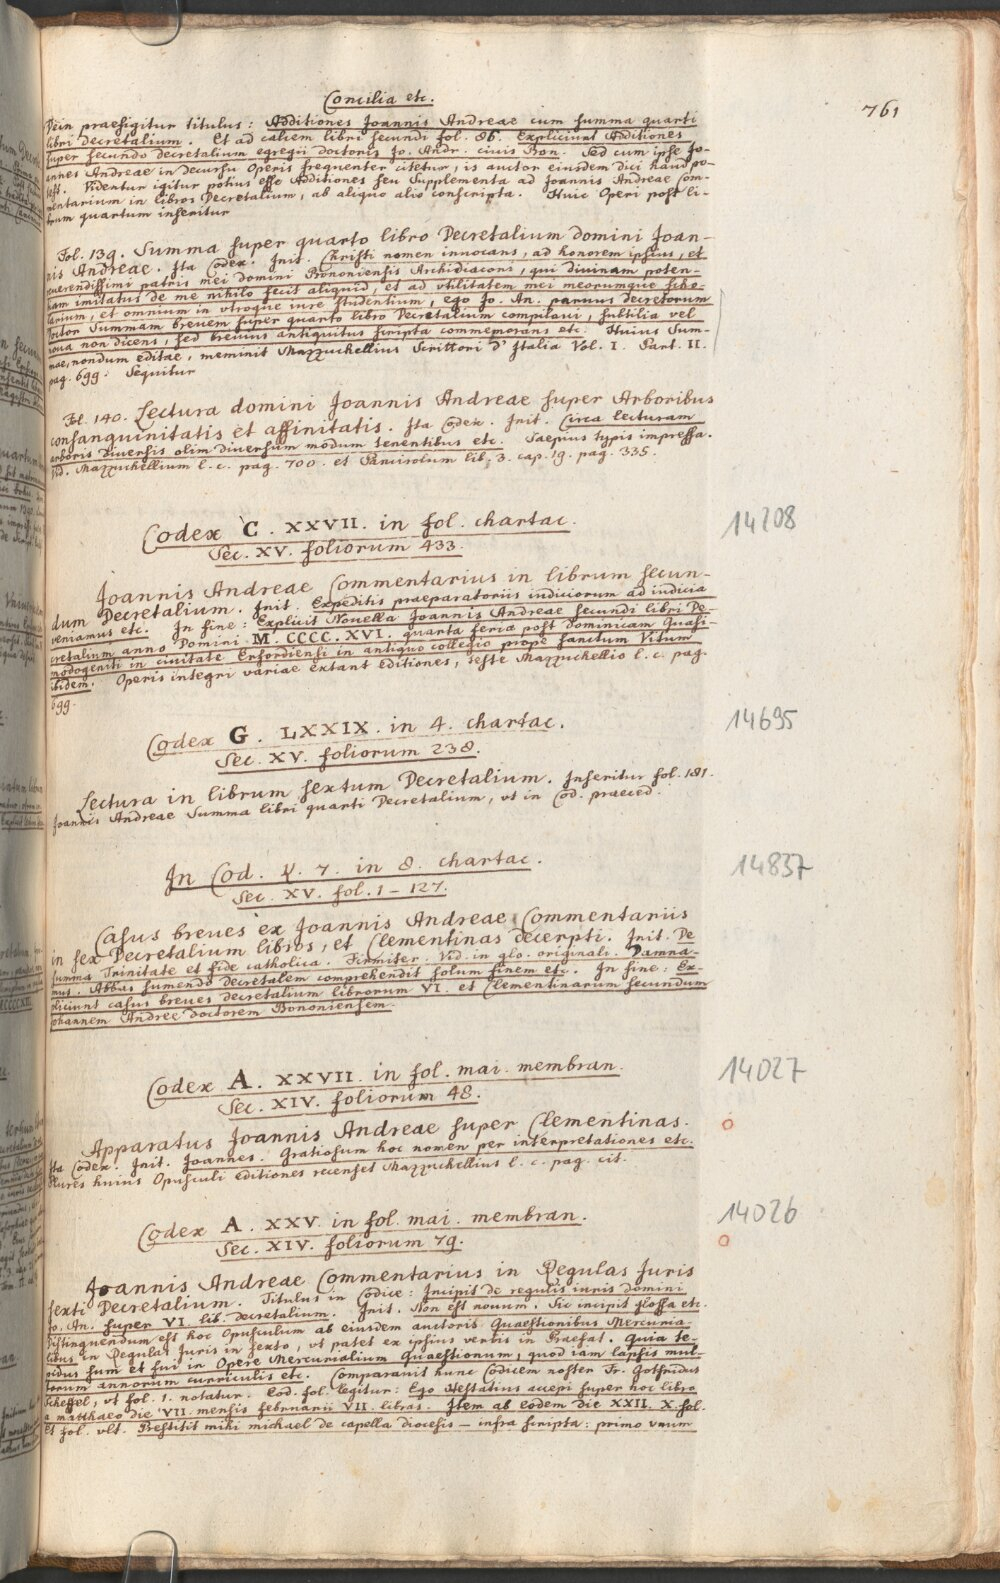 Concilia etc.
761
Dein praefigitur titulus: Additiones Joannis Andreae cum summa quarti
libri Decretalium. Et ad calcem libri secundi fol. 86. Expliciunt Additiones
super secundo decretalium egregii doctoris Jo. Andr. ciuis Bon. Sed cum ipse Jo-
annes Andreae in decursu Operis frequenter citetur, is auctor eiusdem dici haud po-
test. Videntur igitur potius esse Additiones seu Supplementa ad Joannis Andreae Com-
mentarium in libros Decretalium, ab aliquo alio conscripta. Huic Operi post li-
brum quartum inseritur
Fol. 139. Summa super quarto libro Decretalium domini Joan-
nis Andreae. Ita Codex. Init. Christi nomen inuocans, ad honorem ipsius, et
reuerendissimi patris mei domini Bononiensis Archidiaconi, qui diuinam poten-
tiam imitatus de me nihilo fecit aliquid, et ad vtilitatem mei meorumque scho-
larium, et omnium in vtroque iure studentium, ego Jo. An. paruus decretorum
doctor Summam breuem super quarto libro Decretalium compilaui, subtilia vel
noua non dicens, sed breuius antiquitus scripta commemorans etc. Huius Sum-
mae, nondum editae, meminit Mazzuchellius Scrittori d'Italia Vol. I. Part. II.
pag. 699. Sequitur
Fol. 140. Lectura domini Joannis Andreae super Arboribus
consanguinitatis et affinitatis. Ita Codex. Init. Circa lecturam
arboris diuersis olim diuersum modum tenentibus etc. Saepius typis impressa.
Vid. Mazzuchellium l. c. pag. 700. et Pancirolum lib. 3. cap. 19. pag. 335.
Codex C. XXVII. in fol. chartac.
14208
Sec. XV. foliorum 433.
Joannis Andreae Commentarius in librum secun-
dum Decretalium. Init. Expeditis praeparatoriis iudiciorum ad iudicia
veniamus etc. In fine: Explicit Nouella Joannis Andreae secundi libri De-
cretalium anno Domini M. CCCC. XVI. quarta feria post dominicam Quasi-
modogeniti in ciuitate Erfordiensi in antiquo collegio prope sanctum Vitum
ibidem. Operis integri variae extant Editiones, teste Mazzuchellio l. c. pag.
699.
Codex G. LXXIX. in 4. chartac.
14695
Sec. XV. foliorum 238.
Lectura in librum sextum Decretalium. Inseritur fol. 181.
Joannis Andreae Summa libri quarti Decretalium, vt in Cod. praeced.
In Cod. ψ. 7. in 8. chartac.
14837
Sec. XV. fol. 1 - 127.
Casus breues ex Joannis Andreae Commentariis
in sex Decretalium libros, et Clementinas decerpti. Init. De
summa Trinitate et fide catholica. Firmiter. Vid. in glo. originali. Damna-
mus. Abbas sumendo decretalem comprehendit solum finem etc. In fine: Ex-
pliciunt casus breues decretalium librorum VI. et Clementinarum secundum
Johannem Andree doctorem Bononiensem.
Codex A. XXVII. in fol. mai. membran.
14027
Sec. XIV. foliorum 48.
Apparatus Joannis Andreae super Clementinas.
Ita Codex. Init. Joannes. Gratiosum hoc nomen per interpretationes etc.
Plures huius Opusculi editiones recenset Mazzuchellius l. c. pag. cit.
Codex A. XXV. in fol. mai. membran.
14026
Sec. XIV. foliorum 79.
Joannis Andreae Commentarius in Regulas Juris
sexti Decretalium. Titulus in Codice: Incipit de regulis iuris domini
Jo. An. super VI. lib. decretalium. Init. Non est nouum. Sic incipit glossa etc.
Distinguendum est hoc Opusculum ab eiusdem auctoris Quaestionibus Mercuria-
libus in Regulas Juris in Sexto, vt patet ex ipsius verbis in Praefat. Quia te-
pidus sum et fui in Opere Mercurialium Quaestionum, quod iam lapsis mul-
torum annorum curriculis etc. Comparauit hunc Codicem noster Fr. Gotfridus
Scheffel, vt fol. 1. notatur. Eod. fol. legitur: Ego Altestatius accepi super hoc libro
a matthaeo die VII. mensis februarii VII. libras. Item ab eodem die XXII. X. sol.
Et fol. vlt. Prestitit mihi michael de capella diocesis — infra scripta: primo vnum